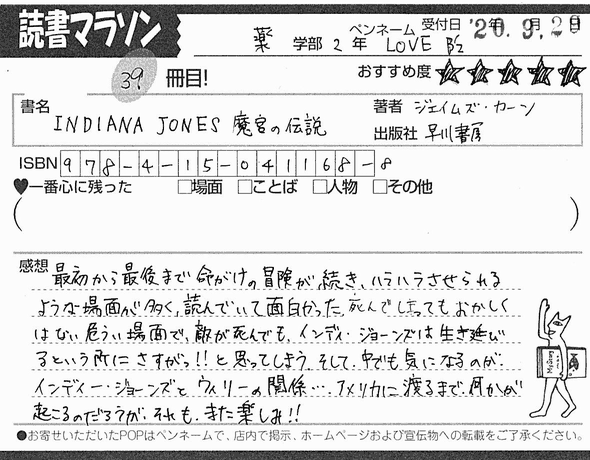 読書マラソン
薬 学部 2 年 ペンネーム LOVE B'z 受付日 '20.9.20
39 冊目! おすすめ度 ☆☆☆☆☆
書名 INDIANA JONES 魔宮の伝説
著者 ジェイムズ・カーン
出版社 早川書房
ISBN 978-4-15-041168-8
♥一番心に残った □場面 □ことば □人物 □その他
( )
感想 最初から最後まで命がけの冒険が続き、ハラハラさせられる
ような場面が多く、読んでいて面白かった。死んでしまってもおかしく
はない危うい場面で、敵が死んでも、インディ・ジョーンズは生き延び
るという所にさすがっ!!と思ってしまう。そして、中でも気になるのが、
インディー・ジョーンズとウィリーの関係…。アメリカに渡るまで、何かが
起こるのだろうが、それも、また楽しみ!!
●お寄せいただいたPOPはペンネームで、店内で掲示、ホームページおよび宣伝物への転載をご了承ください。